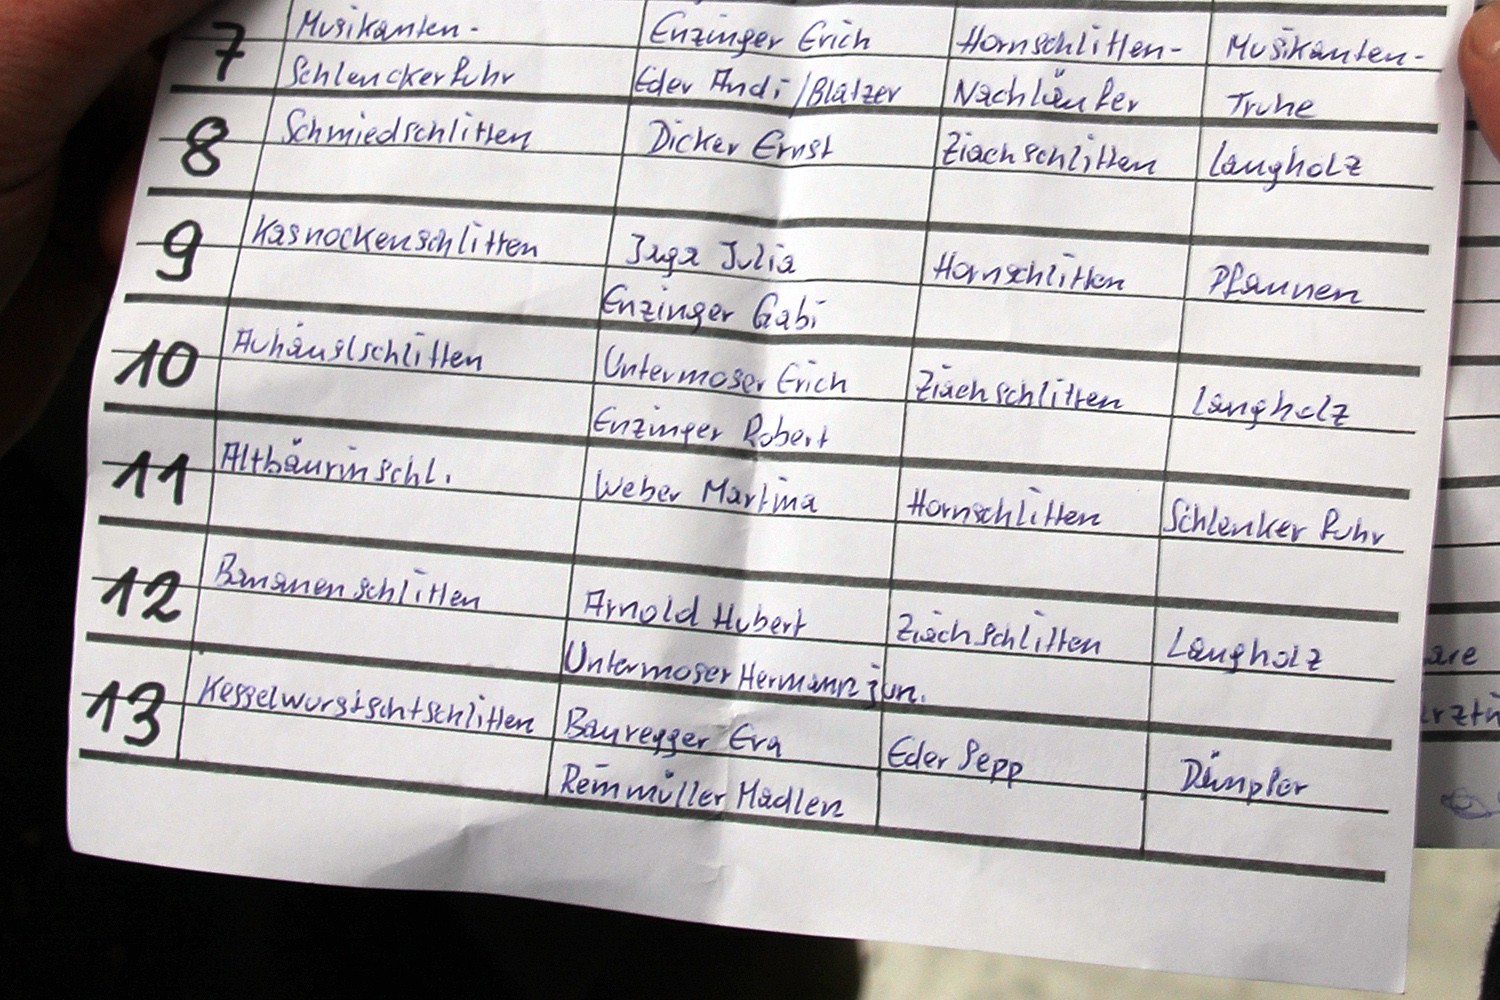 7 Musikanten- Enzinger Erich Hornschlitten- Musikanten-
Schlenckerfuhr Eder Andi/Blatzer Nachläufer Truhe
8 Schmiedschlitten Dicker Ernst Ziachschlitten Langholz
9 Kasnockenschlitten Juga Julia Hornschlitten Pfannen
Enzinger Gabi
10 Auhäuslschlitten Untermoser Erich Ziachschlitten Langholz
Enzinger Robert
11 Altbäurinschl. Weber Martina Hornschlitten Schlenkerfuhr
12 Bananenschlitten Arnold Hubert Ziachschlitten Langholz
Untermoser Hermann jun.
13 Kesselwurstschtschlitten Bauregger Eva Eder Sepp Dämpfer
Reinmüller Madlen